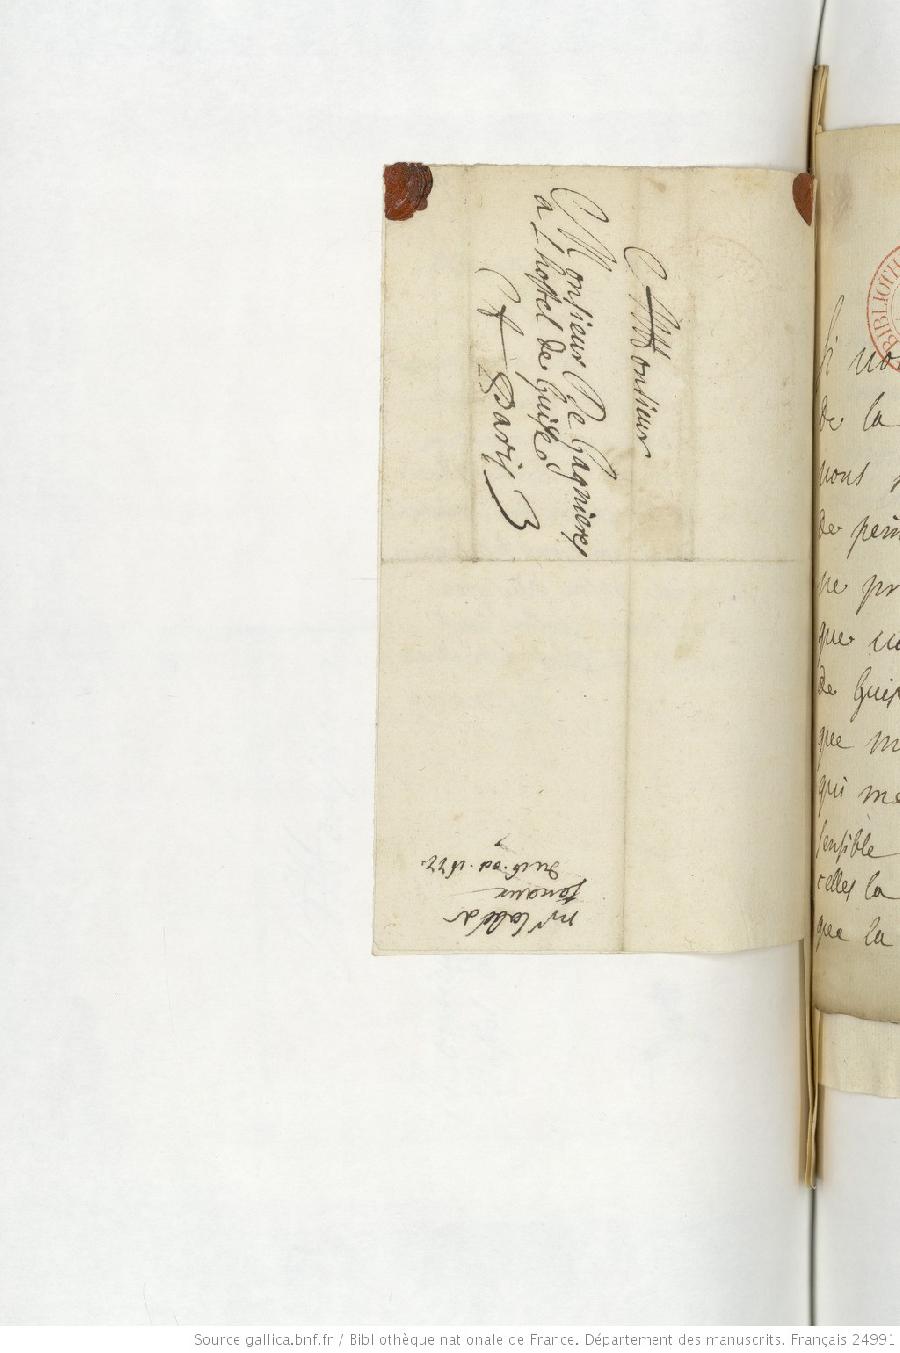 Monsieur
Monsieur De Gagnieres
a L'hostel de Guise
A Paris
mr l'abbé
du 6. oct. 1677.
BIBLIOTH
Si vo
de la
vous
de pein
que
de Guis
que m
qui me
sensible
celles la
que la
Source gallica.bnf.fr / Bibliothèque nationale de France. Département des manuscrits. Français 24991